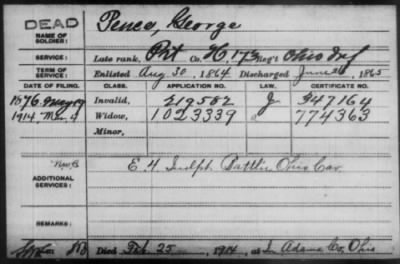 DEAD
NAME OF SOLDIER: Pence, George
SERVICE: Late rank, Prt Co. H, 173 Reg't Ohio Inf
TERM OF SERVICE: Enlisted Aug. 30, 1864 Discharged June 26, 1865
DATE OF FILING. CLASS. APPLICATION NO. LAW. CERTIFICATE NO.
1876. Invalid, 219502 J 347164
1914, Mar. 4 Widow, 1023339 774363
Minor,
ADDITIONAL SERVICES: E 4 Indpt. Battl'n Ohio Cav.
REMARKS:
Died Feb. 25, 1914, at Adams Co., Ohio